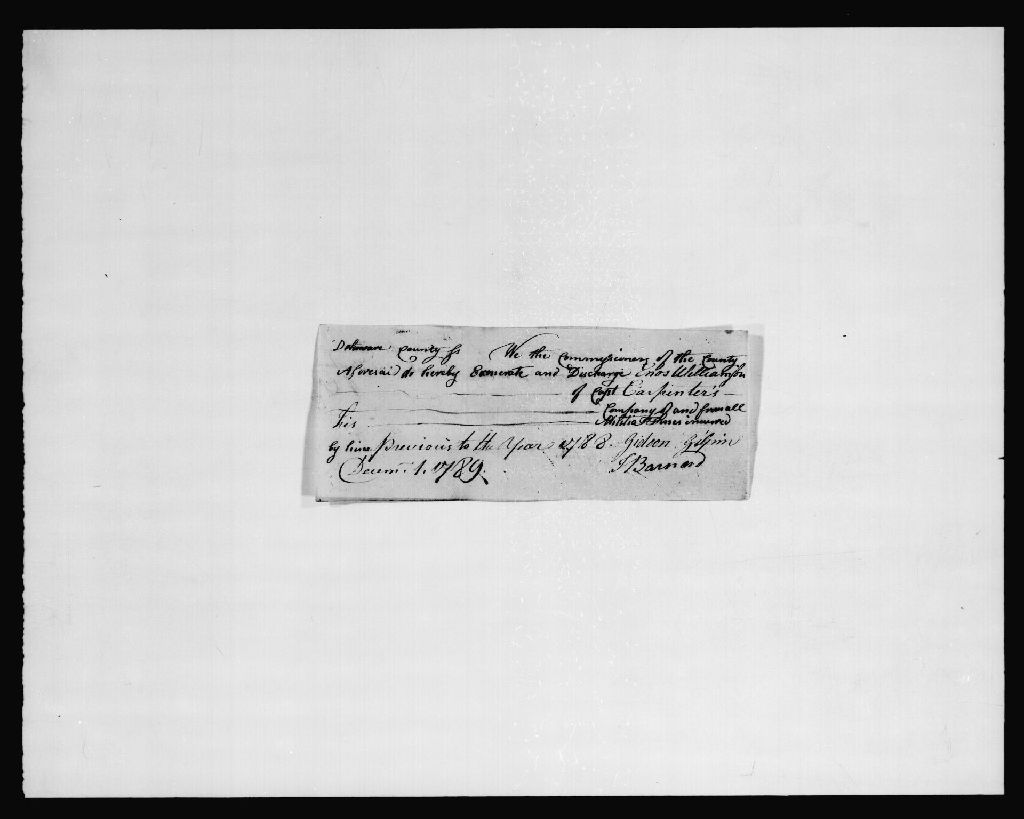 Delaware County ss We the Commissioners of the County
Aforesaid do hereby Exonerate and Discharge Enos Williamson
of Capt Carpinter's
Company of and from all
his Militia Fines incurred
by him Previous to the Year 1788 Gideon Gilpin
Decemr 1. 1789. J Barnard